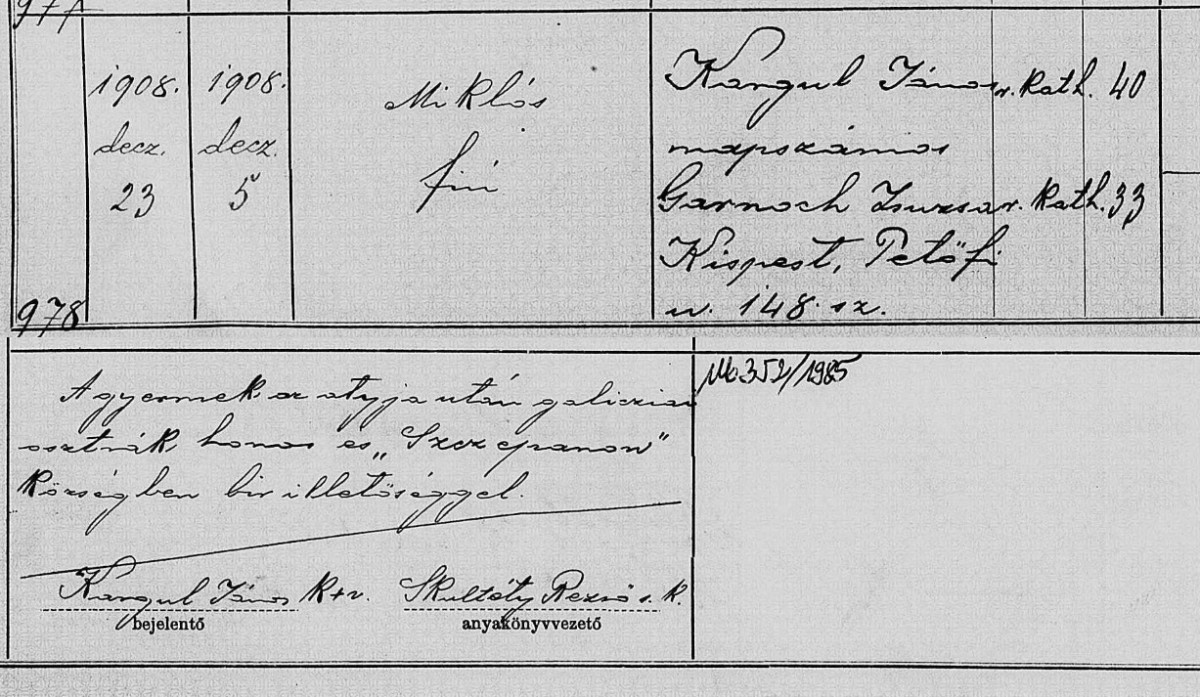 977
1908. 1908. Miklós Kargul János r. kath. 40
decz. decz. napszámos
23 5 fiú Garnoch Zsuzsa r. kath. 33
Kispest, Petőfi
978 u. 148. sz.
A gyermek az atyja után galicziai
osztrák honos és „Szczepanow"
községben bir illetőséggel.
352/1985
Kargul János k+v. Skultéty Rezső s. k.
bejelentő anyakönyvvezető